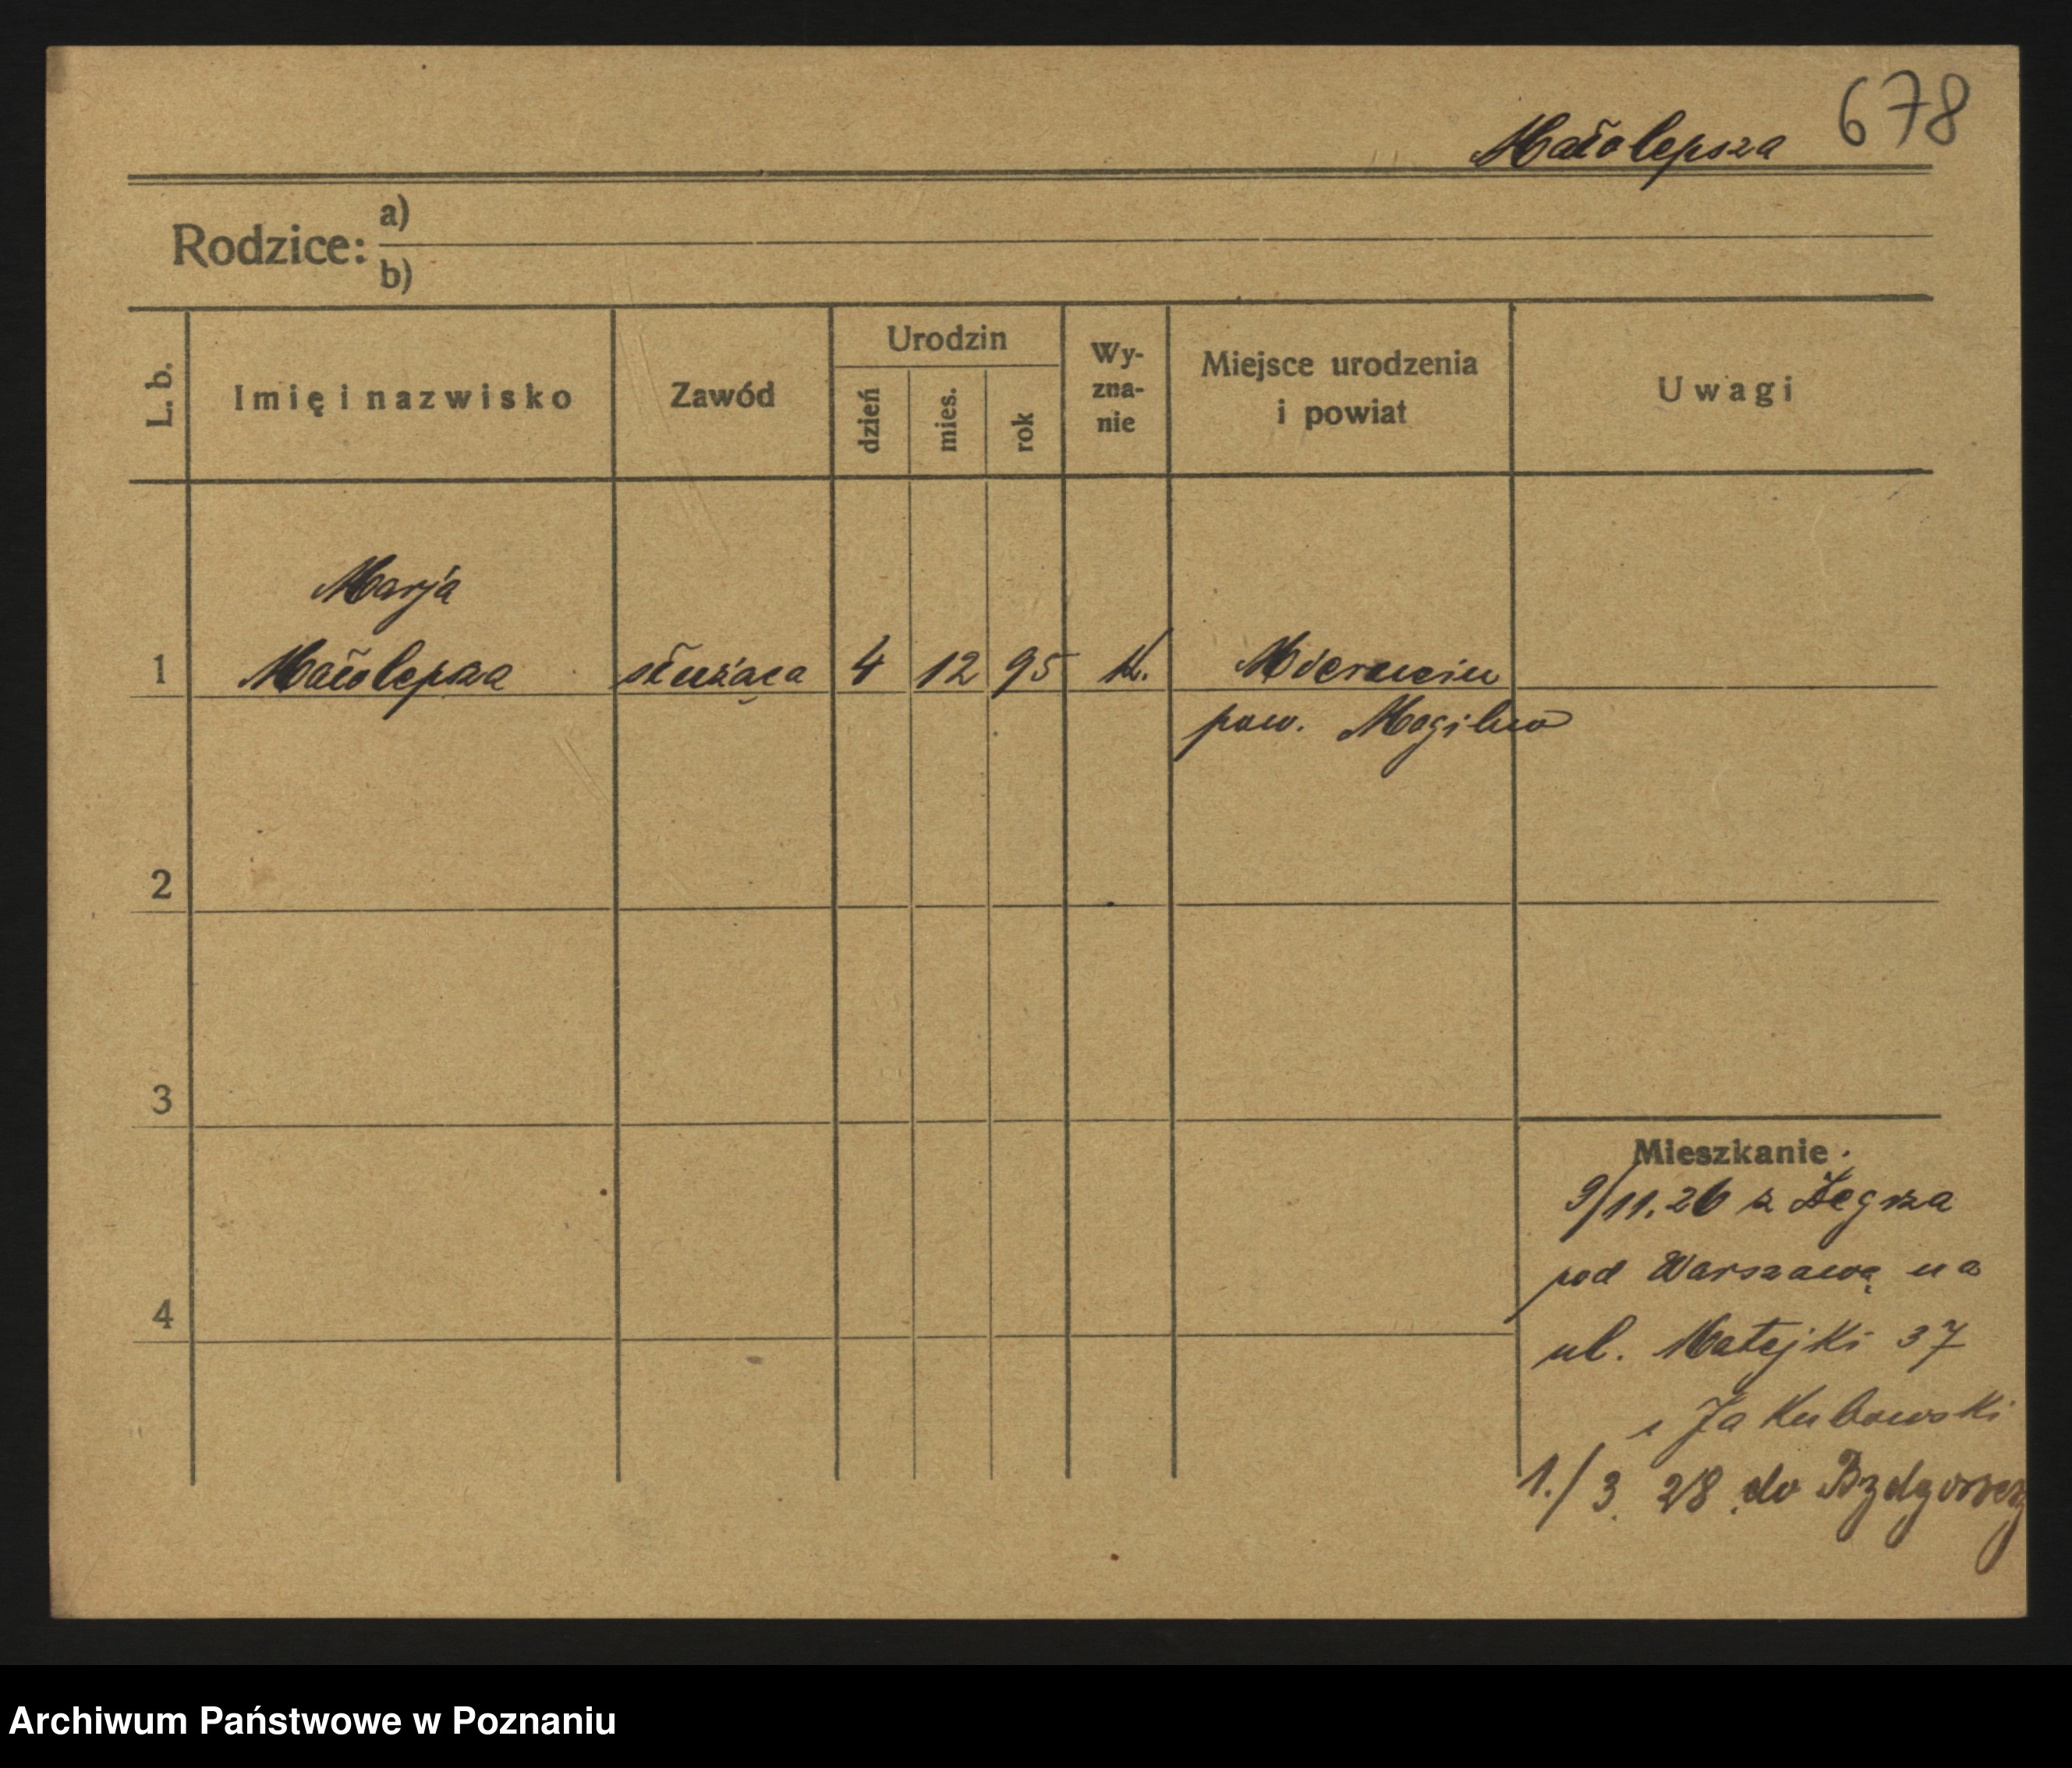 678
Małolepsza
Rodzice: a)
b)
L. b.
Imię i nazwisko
Zawód
Urodzin
dzień
mies.
rok
Wy-
zna-
nie
Miejsce urodzenia
i powiat
Uwagi
Marja
1 Małolepsza służąca 4 12 95 k.
pow. Mogilno
2
3
4
Mieszkanie.
9/11.26 z Zegrza
pod Warszawą na
ul. Matejki 37
Jakubowski
1./3. 28 do Bydgoszczy
Archiwum Państwowe w Poznaniu